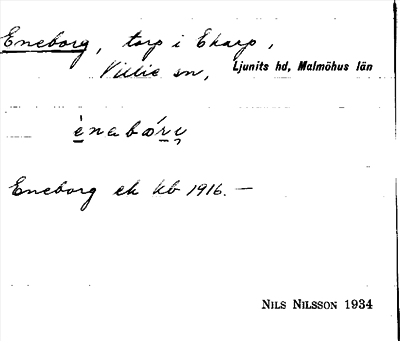 Eneborg, torp i Ekarp,
Villie sn, Ljunits hd, Malmöhus län
ènabór̨y
Eneborg ek kb 1916. —
NILS NILSSON 1934